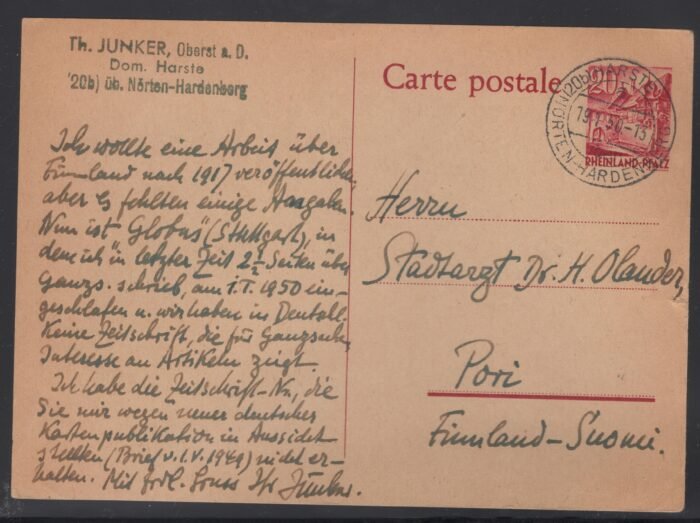 Th. JUNKER, Oberst a. D.
Dom. Harste
(20b) üb. Nörten-Hardenberg
Carte postale
20
RHEINLAND-PFALZ
(20b) HARSTE
19.1.50-13
NÖRTEN-HARDENBERG
Ich wollte eine Arbeit über
Finnland nach 1917 veröffentlichen,
aber es fehlten einige Angaben.
Nun ist "Globus" (Stuttgart), in
dem ich in letzter Zeit 2½ Seiten über
Ganzs. schrieb, am 1.1.1950 ein-
geschlafen u. wir haben in Deutschl.
keine Zeitschrift, die für Ganzsachen
Interesse an Artikeln zeigt.
Ich habe die Zeitschrift-Nr., die
Sie mir wegen neuer deutscher
Kartenpublikation in Aussicht
stellten (Brief v. 1.V.1949) nicht er-
halten. Mit frdl. Gruss Ihr Junker.
Herrn
Stadtarzt Dr. H. Olander,
Pori
Finnland-Suomi.